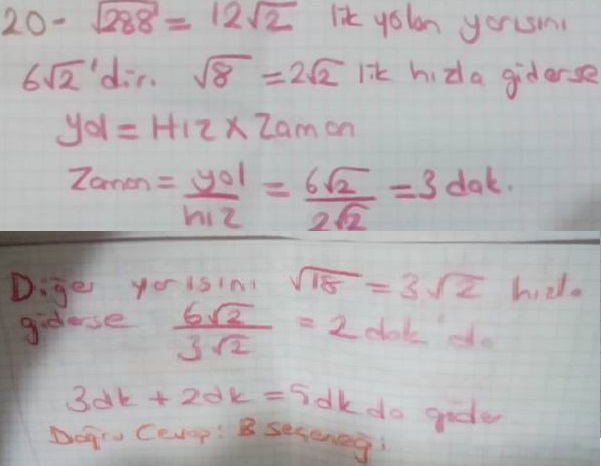 20- √288 = 12√2 lik yolun yarısını
6√2'dir. √8 = 2√2 lik hızla giderse
yol = Hız x Zaman
Zaman = yol/hız = 6√2/2√2 = 3 dak.
Diğer yarısını √18 = 3√2 hızla
giderse 6√2/3√2 = 2 dak'da
3dk + 2dk = 5dk da gider
Doğru Cevap: B seçeneği.